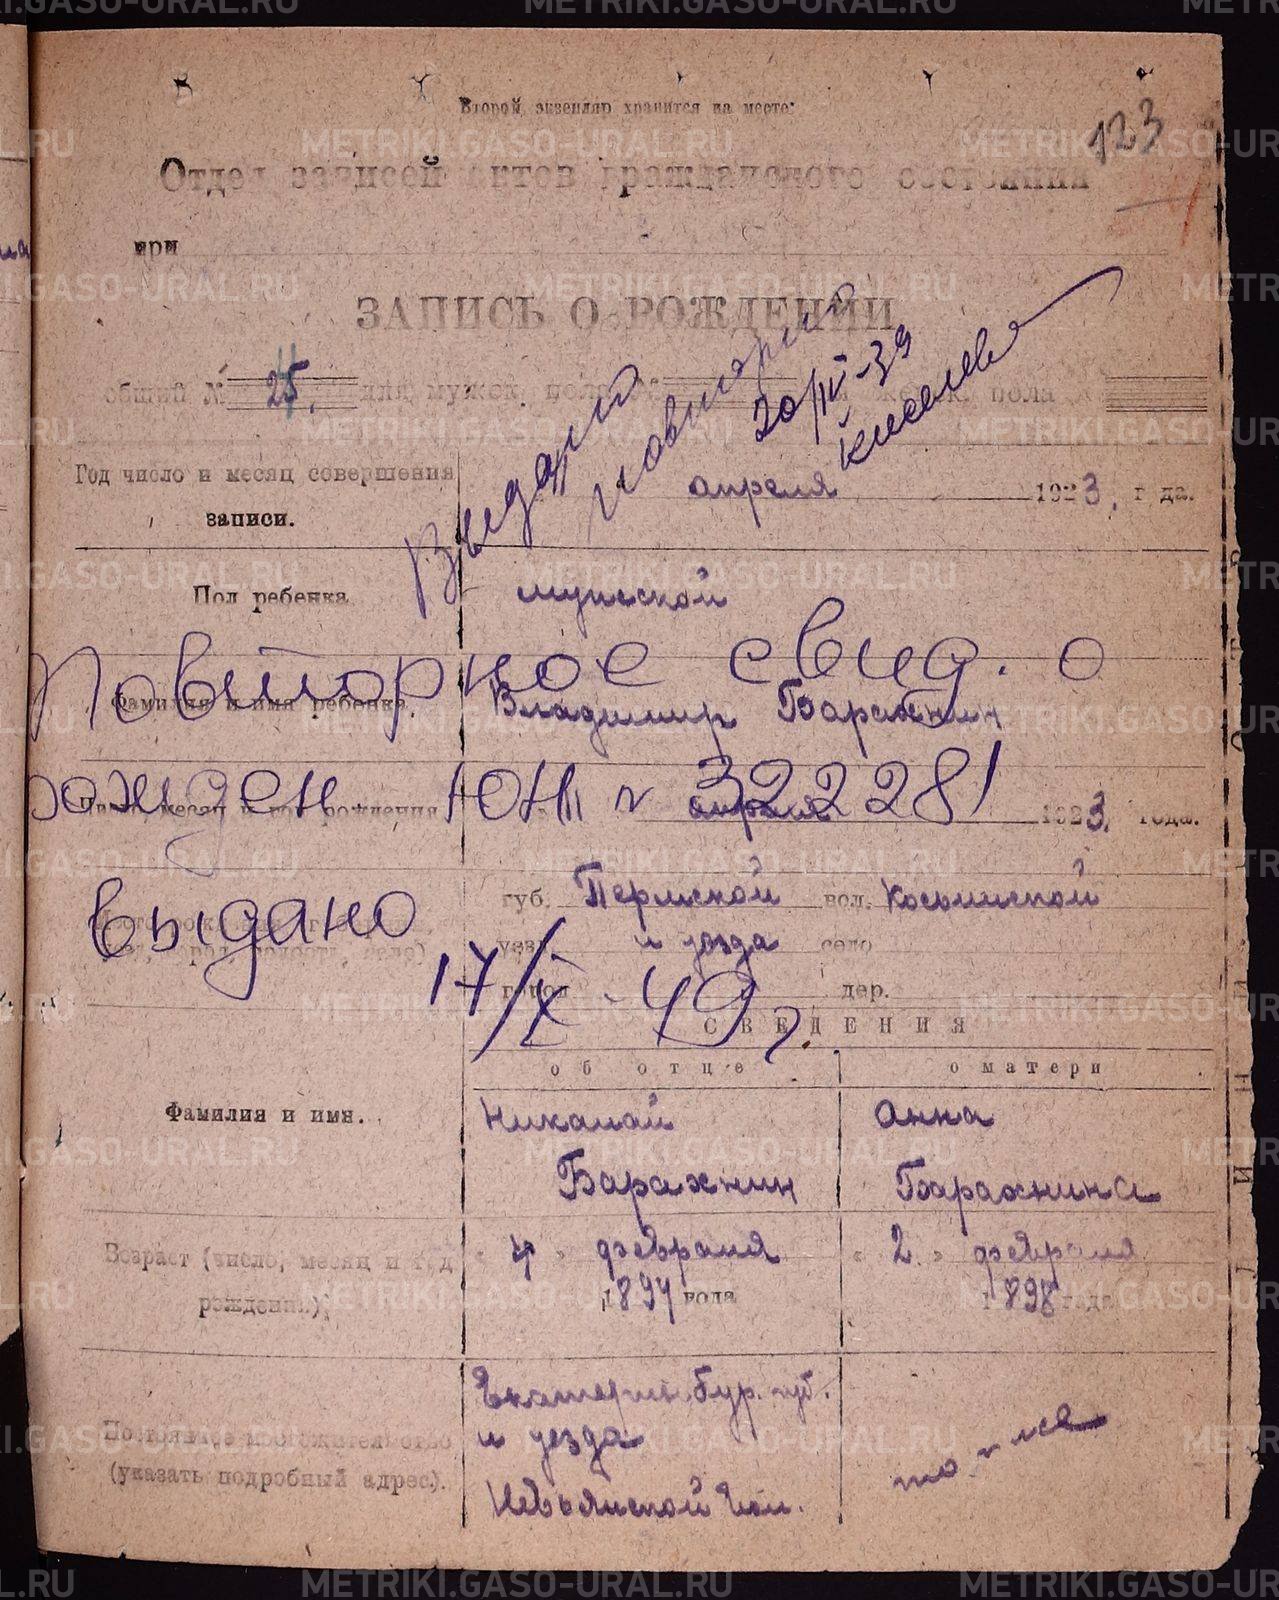 123
Второй экземпляр хранится на месте:
Отдел записей актов гражданского состояния
при
ЗАПИСЬ О РОЖДЕНИИ
общий № 25. для мужск. пола № женск. пола №
Выданы
20/IV-39
Киселева
Год число и месяц совершения записи.
апреля 1923. года.
Пол ребенка
мужской
Повторное свид. о
Фамилия и имя ребенка.
Владимир Барахнин
рожден ЮН № 322281
месяц и год рождения
апреля 1923. года.
Выдано
17/X-49 г.
губ. Пермской вол.
уезд и уезда село
город дер.
СВЕДЕНИЯ
об отце
о матери
Фамилия и имя.
Николай
Барахнин
Анна
Барахнина
Возраст (число, месяц и год рождения):
" 4 " февраля
1897 года
" 2 " февраля
1898 года
Постоянное местожительство
(указать подробный адрес).
Екатеринбур. губ.
и уезда
Невьянской вол.
то-же
METRIKI.GASO-URAL.RU